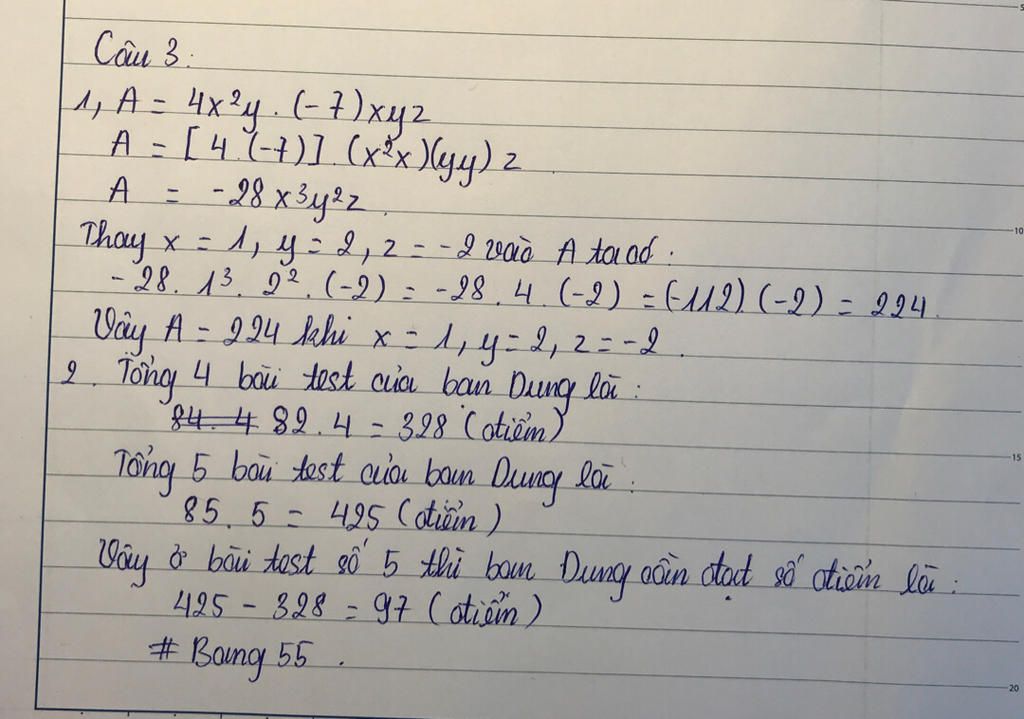 Câu 3:
1, A = 4x²y . (-7)xyz
A = [4.(-7)].(x²x)(yy) z
A = -28x³y²z.
Thay x = 1, y = 2, z = -2 vào A ta có:
-28. 1³. 2² . (-2) = -28 . 4 . (-2) = (-112). (-2) = 224.
Vậy A = 224 khi x = 1, y = 2, z = -2.
2. Tổng 4 bài test của bạn Dung là:
84. 4 82 . 4 = 328 (điểm)
Tổng 5 bài test của bạn Dung là:
85. 5 = 425 (điểm)
Vậy ở bài test số 5 thì bạn Dung cần đạt số điểm là:
425 - 328 = 97 (điểm)
# Bang 55.
5
10
15
20